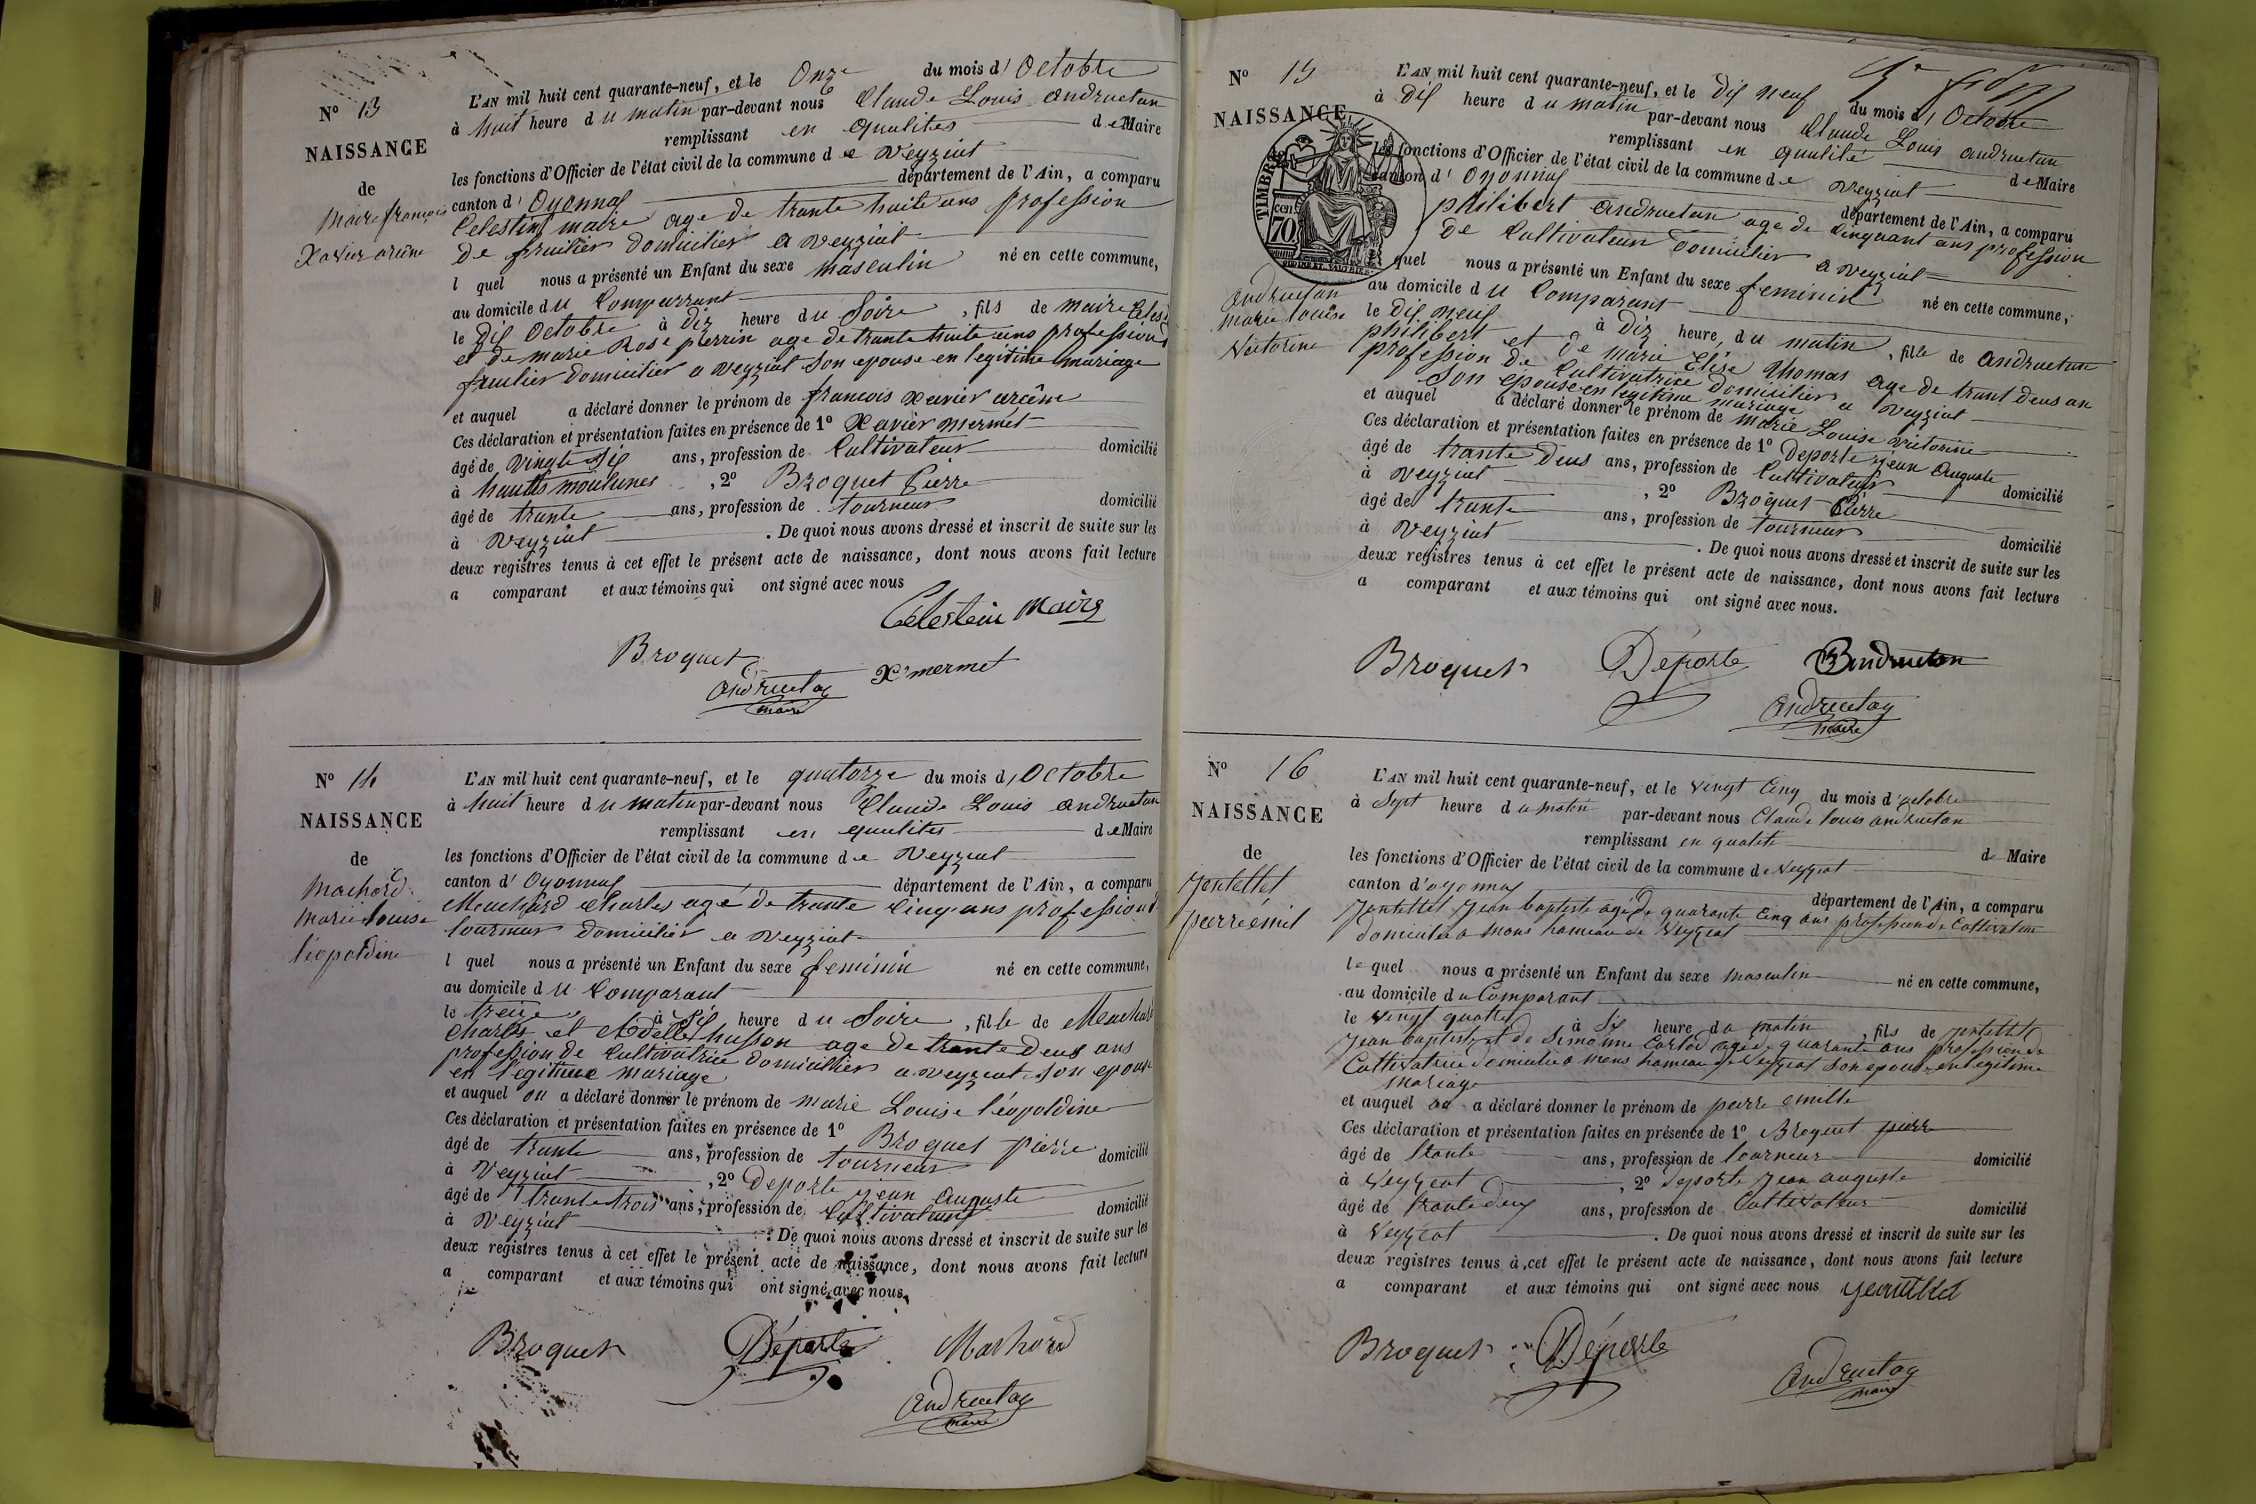 N° 13
NAISSANCE
de
Maire françois
Xavier arcène
L'AN mil huit cent quarante-neuf, et le Onze du mois d' Octobre
à huit heure du matin par-devant nous Claude Louis andruetan
remplissant en qualites de Maire
les fonctions d'Officier de l'état civil de la commune de Veyziat
canton d' Oyonnas département de l'Ain, a comparu
Celestin maire age de trante huite ans profession
de fruitier domicilier a veyziat
l quel nous a présenté un Enfant du sexe masculin né en cette commune,
au domicile du Comparrant
le dis Octobre à diz heure du Soire, fils de maire Celest
et de marie Rose perrin age de trante huite ans profession d
fruitier domicilier a veyziat Son epouse en legitime mariage
et auquel a déclaré donner le prénom de francois xavier arcène
Ces déclaration et présentation faites en présence de 1° Xavier mermet
âgé de vingt Sis ans, profession de Cultivateur domicilié
à hautts moulunes , 2° Broquet Pierre
âgé de trante ans, profession de tourneur domicilié
à Veyziat . De quoi nous avons dressé et inscrit de suite sur les
deux registres tenus à cet effet le présent acte de naissance, dont nous avons fait lecture
a comparant et aux témoins qui ont signé avec nous
Celestein Maire
Broquet
X mermet
andruetan
maire
N° 14
NAISSANCE
de
Machard
Marie Louise
léopoldine
L'AN mil huit cent quarante-neuf, et le quatorze du mois d' Octobre
à huit heure du matin par-devant nous Claude Louis andruetan
remplissant en qualites de Maire
les fonctions d'Officier de l'état civil de la commune de Veyziat
canton d' Oyonnas département de l'Ain, a comparu
Meuchard Charles agé de trante Cinq ans profession d
tourneur domicilier a veyziat
l quel nous a présenté un Enfant du sexe feminin né en cette commune,
au domicile du Comparant
le treize à Sis heure du Soire, fille de Meuchard
Charles et Adelle husson age de trante deus ans
profession de Cultivatrice domicillier a veyziat Son epouse
en legitime mariage
et auquel on a déclaré donner le prénom de marie Louise léopoldine
Ces déclaration et présentation faites en présence de 1° Broquet pierre
âgé de trante ans, profession de tourneur domicilié
à Veyziat , 2° deporte jean Auguste
âgé de trante trois ans, profession de Cultivateur domicilié
à Veyziat . De quoi nous avons dressé et inscrit de suite sur les
deux registres tenus à cet effet le présent acte de naissance, dont nous avons fait lecture
a comparant et aux témoins qui ont signé avec nous
Broquet Déporte Machard
andruetan
maire
N° 15
NAISSANCE
TIMBRE
cen. 70
andruetan
marie louise
Victorine
L'AN mil huit cent quarante-neuf, et le dis neuf du mois d' Octobre
à Dis heure du matin par-devant nous Claude Louis andruetan
remplissant en qualité de Maire
les fonctions d'Officier de l'état civil de la commune de Veyziat
canton d' Oyonnas département de l'Ain, a comparu
philibert andruetan age de Cinquant ans profession
de Cultivateur domicilier a veyziat
quel nous a présenté un Enfant du sexe feminin né en cette commune,
au domicile du Comparant
le dis neuf à Diz heure du matin, fille de andruetan
philibert et de marie Elise thomas age de trant deus an
profession de Cultivatrice domicilier a veyziat
Son epouse en legitime mariage
et auquel a déclaré donner le prénom de marie Louise victorine
Ces déclaration et présentation faites en présence de 1° Deporte jean Auguste
âgé de trante Deus ans, profession de Cultivateur domicilié
à Veyziat , 2° Broquet Pierre
âgé de trante ans, profession de tourneur domicilié
à Veyziat . De quoi nous avons dressé et inscrit de suite sur les
deux registres tenus à cet effet le présent acte de naissance, dont nous avons fait lecture
a comparant et aux témoins qui ont signé avec nous.
Broquet Déporte Andruetan
andruetan
maire
N° 16
NAISSANCE
de
jentettet
pierre émil
L'AN mil huit cent quarante-neuf, et le vingt Cinq du mois d'octobre
à Sept heure du matin par-devant nous Claude louis andruetan
remplissant en qualité de Maire
les fonctions d'Officier de l'état civil de la commune de Veyziat
canton d'oyonnas département de l'Ain, a comparu
jentettet jean baptiste agé de quarante Cinq ans profession de Cultivateur
domicilié a mons hameau de Veyziat
le quel nous a présenté un Enfant du sexe masculin né en cette commune,
au domicile du Comparant
le vingt quattre à Six heure du matin, fils de jentettet
jean baptiste et de Simonne Carlod agé de quarante ans profession de
Cultivatrice domicilié a mons hameau de Veyziat son epouse en legitime
mariage
et auquel on a déclaré donner le prénom de pierre emille
Ces déclaration et présentation faites en présence de 1° Broquet pierre
âgé de trante ans, profession de tourneur domicilié
à Veyziat , 2° deporte jean auguste
âgé de trante deux ans, profession de Cultivateur domicilié
à Veyziat . De quoi nous avons dressé et inscrit de suite sur les
deux registres tenus à cet effet le présent acte de naissance, dont nous avons fait lecture
a comparant et aux témoins qui ont signé avec nous
Broquet Déporte
andruetan
maire